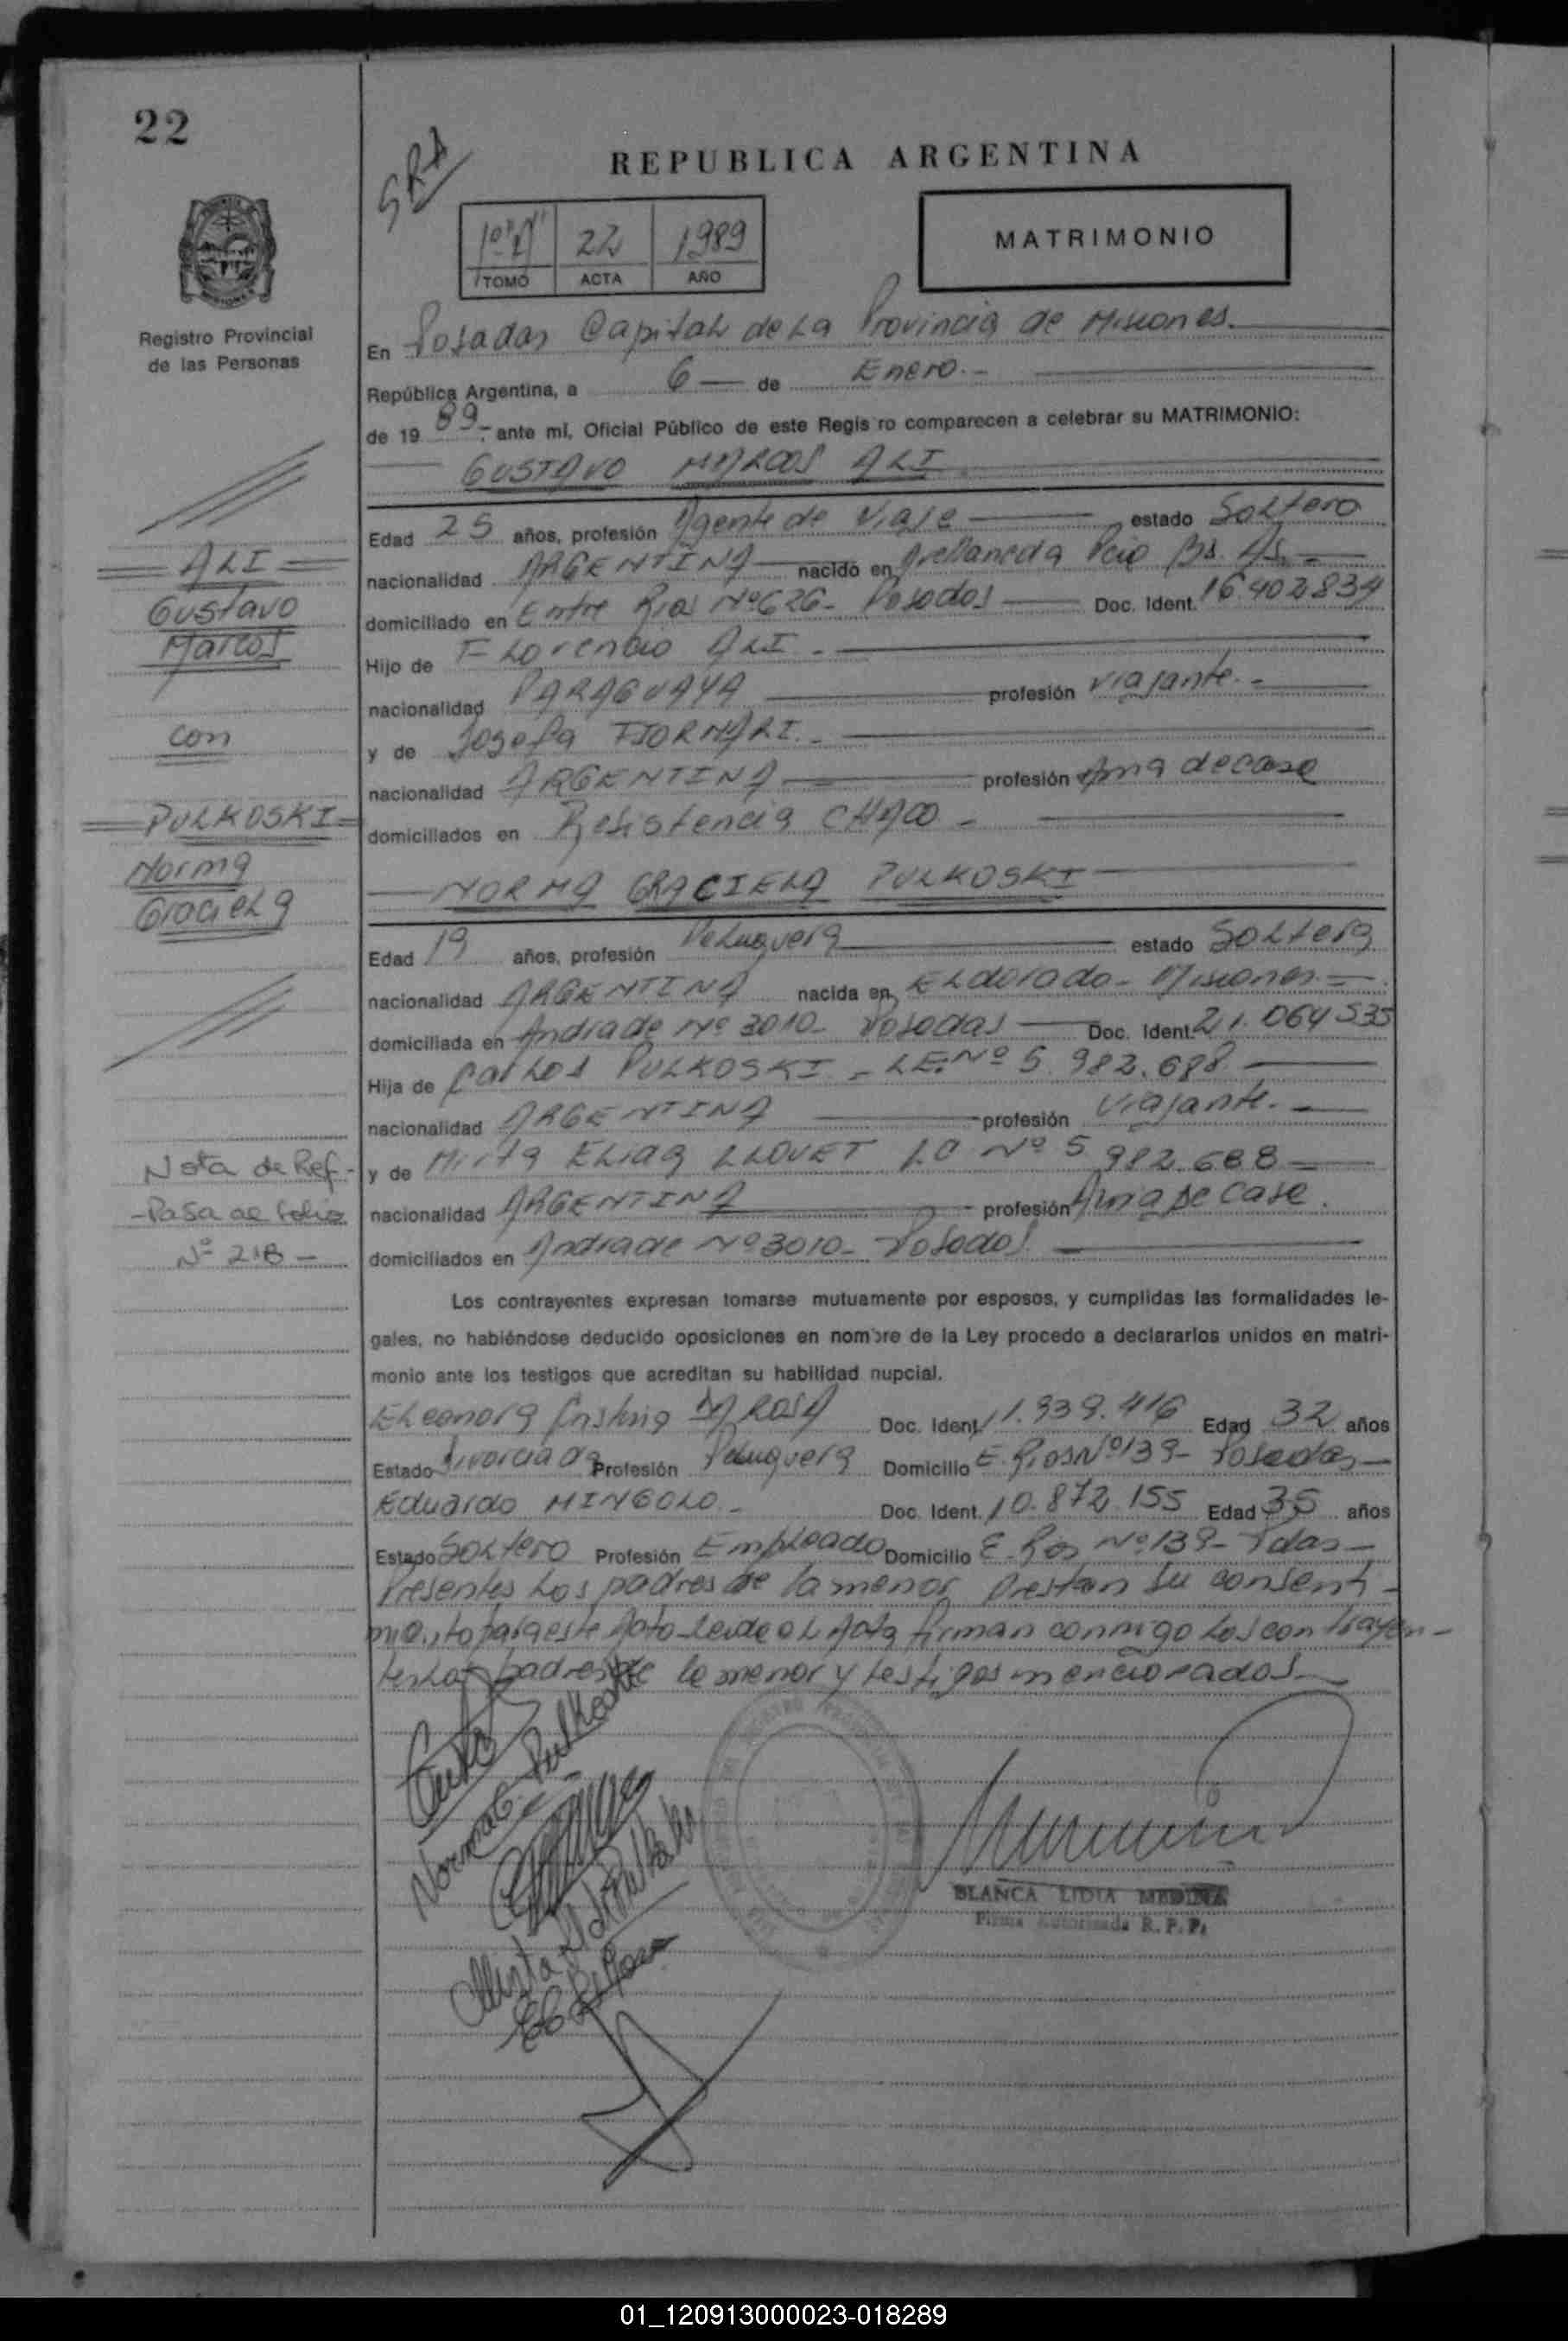 22
REPUBLICA ARGENTINA
SRA
22 1989
TOMO ACTA AÑO
MATRIMONIO
Registro Provincial
de las Personas
En Posadas Capital de la Provincia de Misiones.
República Argentina, a 6 de Enero.-
de 19 89.- ante mí, Oficial Público de este Regis ro comparecen a celebrar su MATRIMONIO:
GUSTAVO MARCOS ALI
Edad 25 años, profesión Agente de Viaje estado Soltero
nacionalidad ARGENTINA nacido en Avellaneda Pcia Bs. As.
domiciliado en Entre Rios Nº 626- Posadas Doc. Ident. 16.402.834
Hijo de Florencio ALI.-
nacionalidad PARAGUAYA profesión viajante.-
y de Josefa FIORMARI.-
nacionalidad ARGENTINA profesión Ama de casa
domiciliados en Resistencia CHACO -
NORMA GRACIELA PULKOSKI
Edad 19 años, profesión Peluquera estado Soltera
nacionalidad ARGENTINA nacida en Eldorado- Misiones.=
domiciliada en Andrade Nº 3010- Posadas Doc. Ident. 21.064.535
Hija de Carlos PULKOSKI - LE. Nº 5.982.688
nacionalidad ARGENTINA profesión viajante.-
y de Mirta Elias LLOVET LC Nº 5 982.688
nacionalidad ARGENTINA profesión Ama de Casa.
domiciliados en Andrade Nº 3010- Posadas.
Los contrayentes expresan tomarse mutuamente por esposos, y cumplidas las formalidades le-
gales, no habiéndose deducido oposiciones en nombre de la Ley procedo a declararlos unidos en matri-
monio ante los testigos que acreditan su habilidad nupcial.
Eleonora Cristina DA ROSA Doc. Ident. 11.939.416 Edad 32 años
Estado Divorciada Profesión Peluquera Domicilio E. Rios Nº 139- Posadas-
Eduardo MINGOLO.- Doc. Ident. 10.872.155 Edad 35 años
Estado Soltero Profesión Empleado Domicilio E. Rios Nº 139- Pdas-
Presentes los padres de la menor prestan su consenti-
miento para este Acto leida el Acta firman conmigo los contrayen-
tes los padres de la menor y testigos mencionados-
Norma G. Pulkoski
BLANCA LIDIA MEDINA
Firma Autorizada R. P. P.
ALI
Gustavo
Marcos
con
PULKOSKI
Norma
Graciela
Nota de Ref.-
-Pasa al folio
Nº 218-
01_120913000023-018289